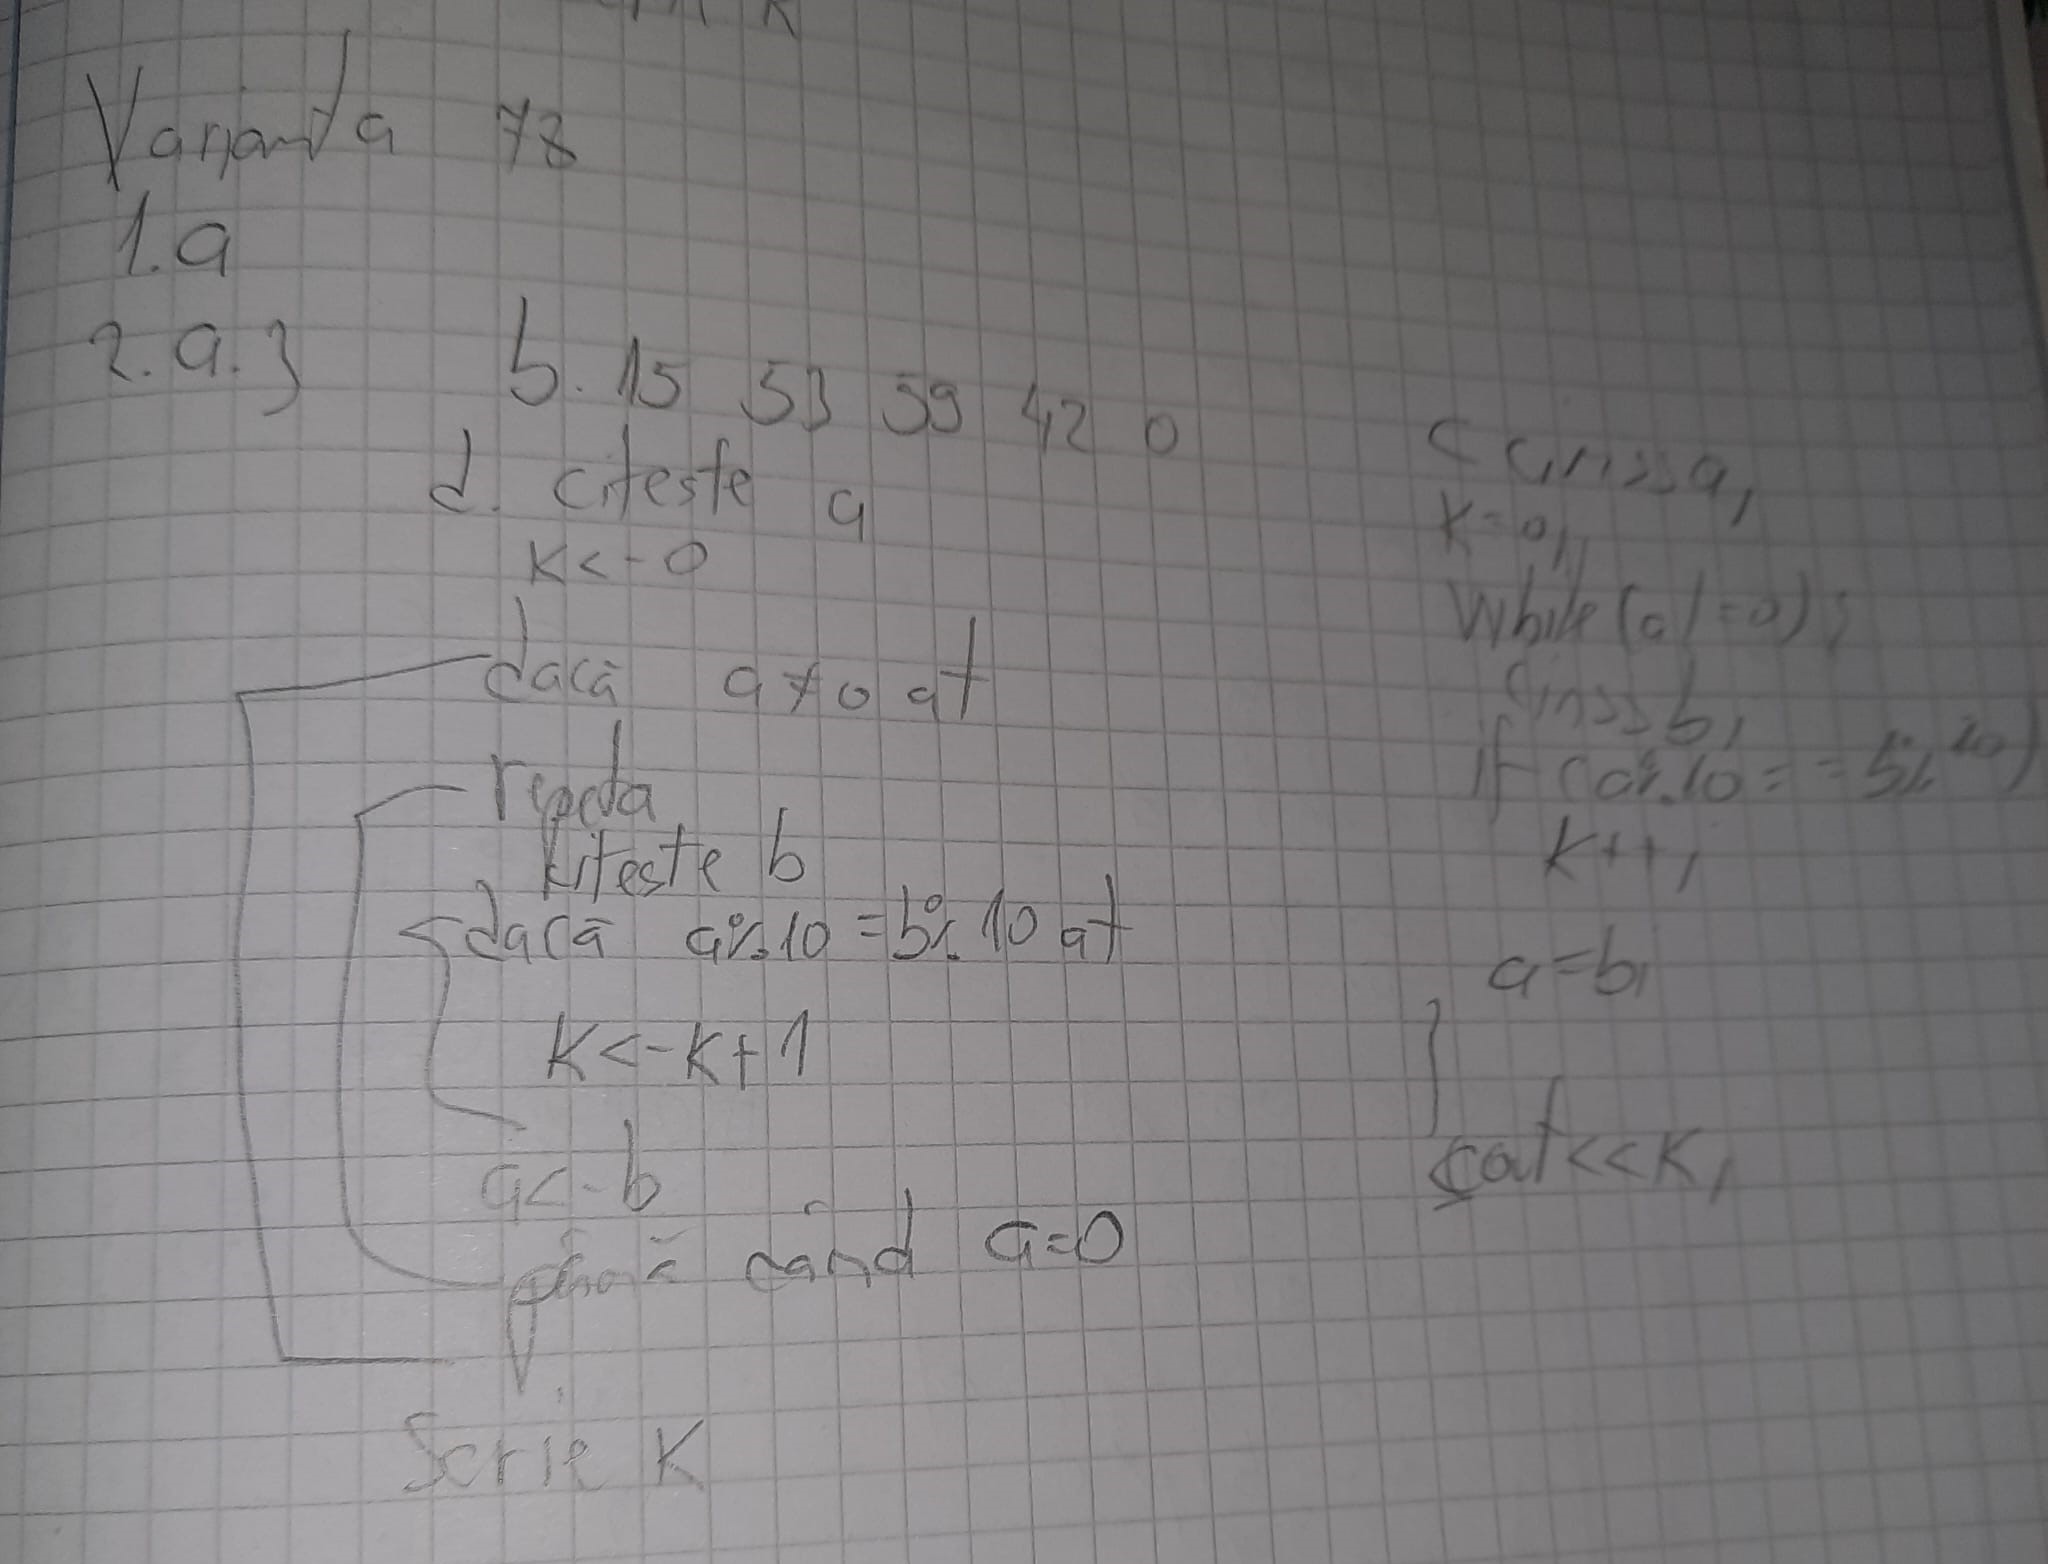 Varianta 78
1. a
2. a. 3 b. 15 53 59 42 0
d. citeste a
K<-0
dacă a≠0 at
repeta
citeste b
dacă a%10=b%10 at
K<-K+1
a<-b
până când a=0
Scrie K
c cin>>a;
K=0;
While(a!=0);
cin>>b;
if (a%10==b%10)
K++;
a=b;
}
cout<<K;